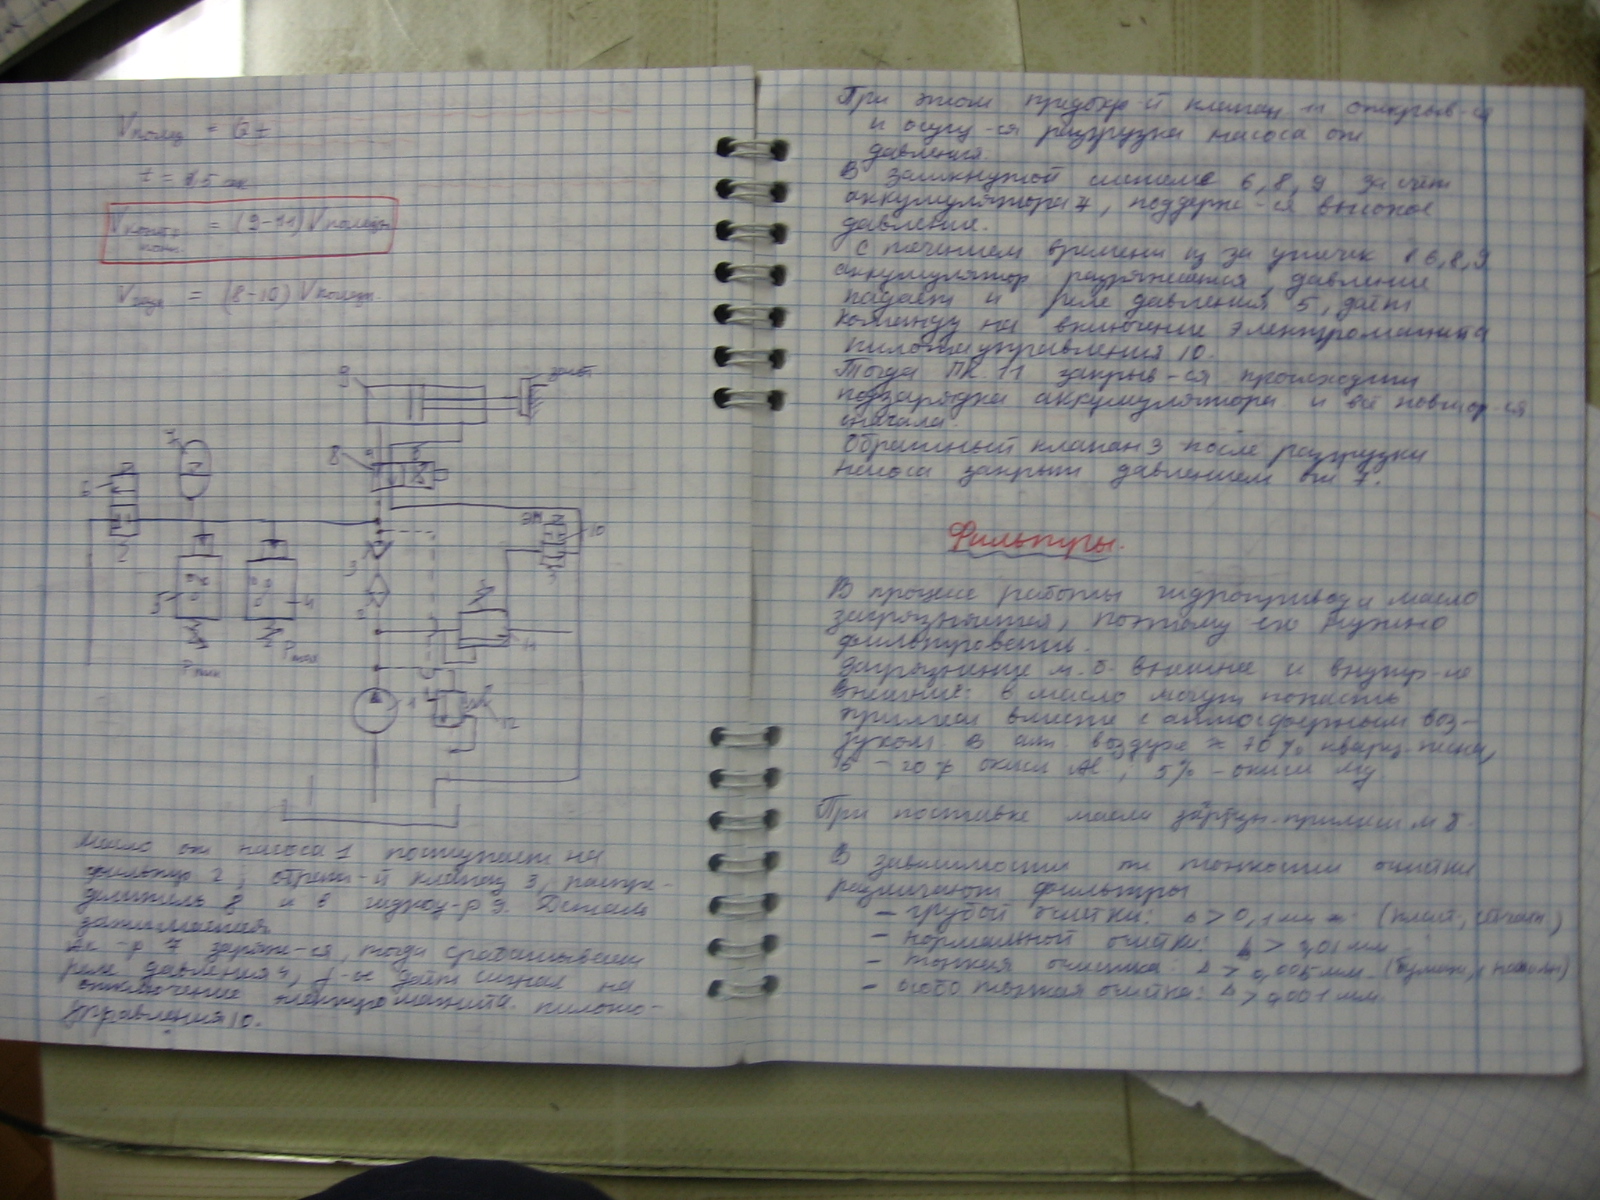 t = 15
9
8
7
6
10
ЭМ
2
5
4
3
Pmin
Pmax
11
1
12
Масло от насоса 1 поступает на
фильтр 2, обратн-й клапан 3, распре-
делитель 8 и в гидроц-р 9. Деталь
зажимается.
Ак-р 7 заряж-ся, тогда срабатывает
реле давления 4, даёт сигнал на
отключение электромагнита пилото-
управления 10.
При этом предохр-й клапан 11 открыв-ся
и осущ-ся разгрузка насоса от
давления.
В замкнутой системе 6, 8, 9 за счёт
аккумулятора 7, поддерж-ся высокое
давление.
С течением времени из за утечек в 6, 8, 9
аккумулятор разряжается, давление
падает и реле давления 5, даёт
команду на включение электромагнита
пилота управления 10.
Тогда ПК 11 закрыв-ся происходит
подзарядка аккумулятора и всё повтор-ся
сначала.
Обратный клапан 3 после разгрузки
насоса закрыт давлением от 7.
Фильтры.
В процессе работы гидропривода масло
загрязняется, поэтому его нужно
фильтровать.
Загрязнение м.б. внешнее и внутр-ее
Внешние: в масло могут попасть
примеси вместе с атмосферным воз-
духом. В атм. воздухе ≈ 70%
окиси Al, 5% - окиси
При поставке масла примеси м.б.
В зависимости от тонкости очистки
различают фильтры
- грубой очистки: Δ > 0,1 мм
- нормальной очистки: Δ > 0,01 мм
- тонкая очистка: Δ > 0,005 мм
- особо тонкая очистка: Δ > 0,001 мм.